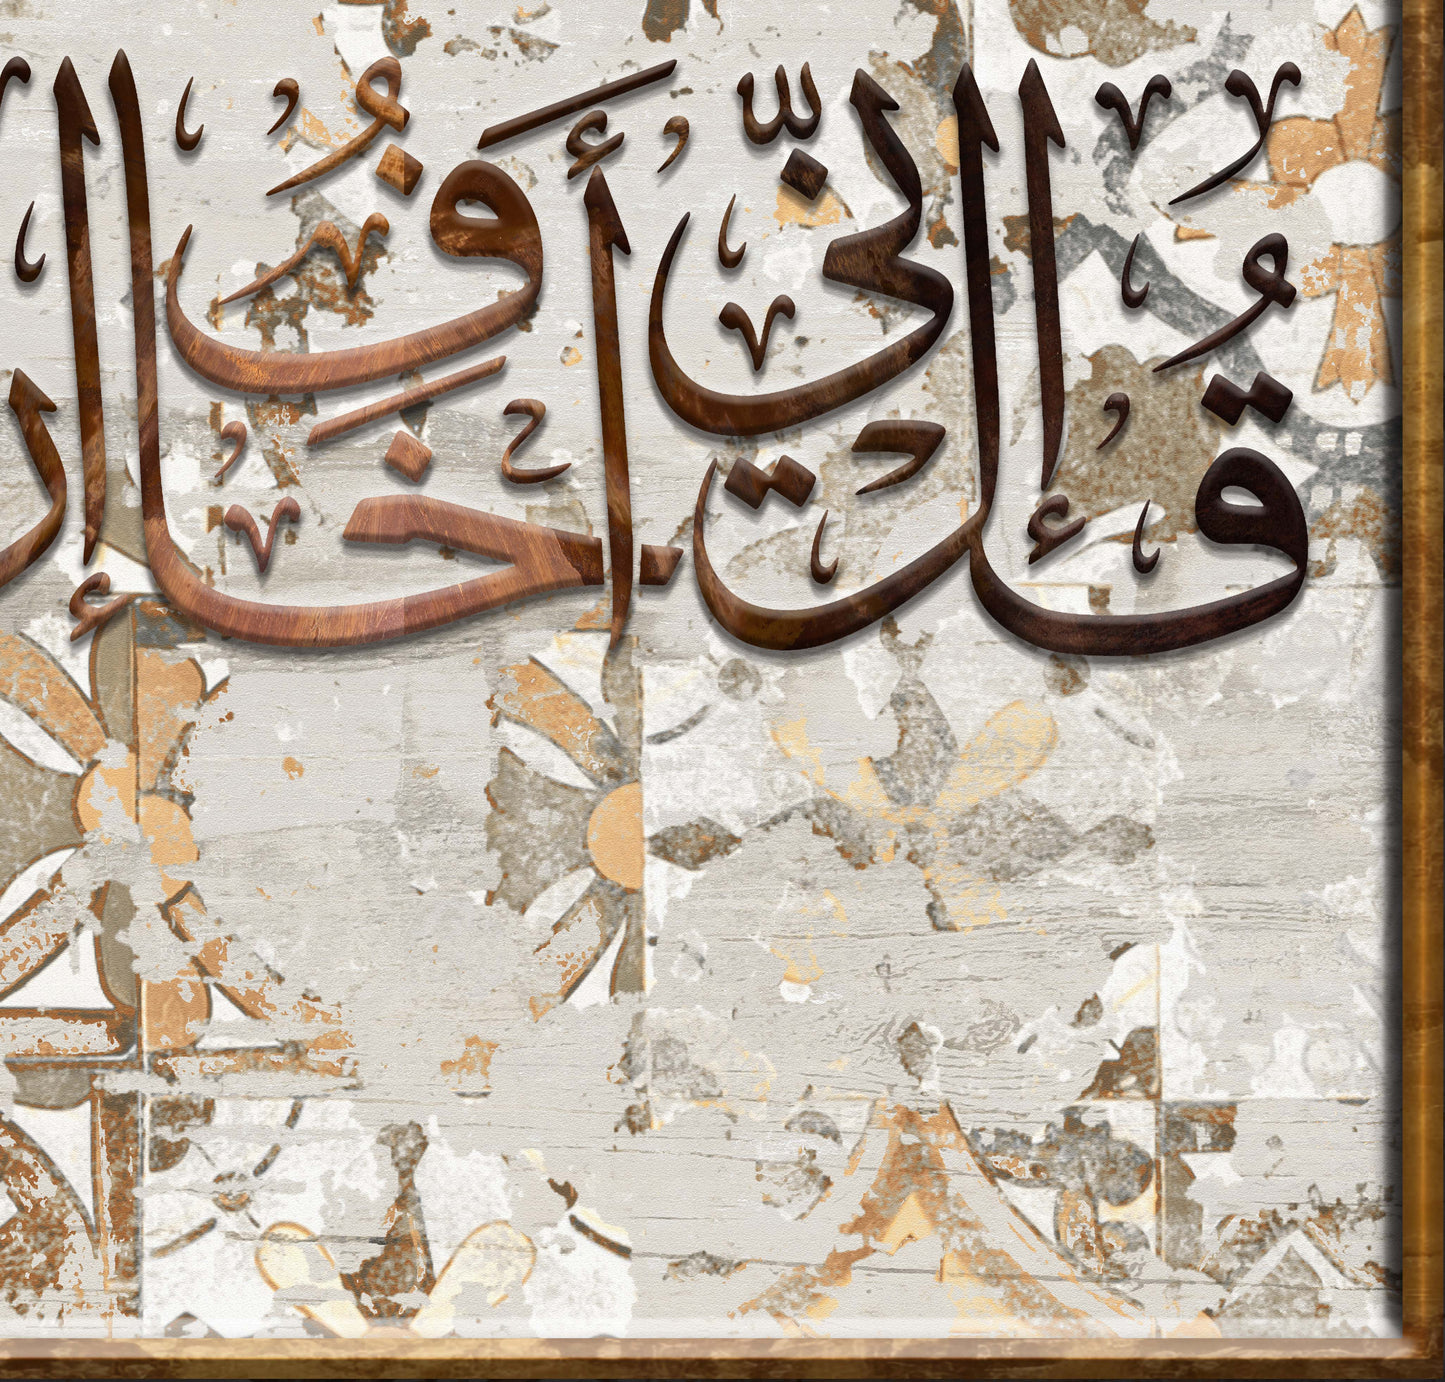 قُلْ إِنِّي أَخَافُ